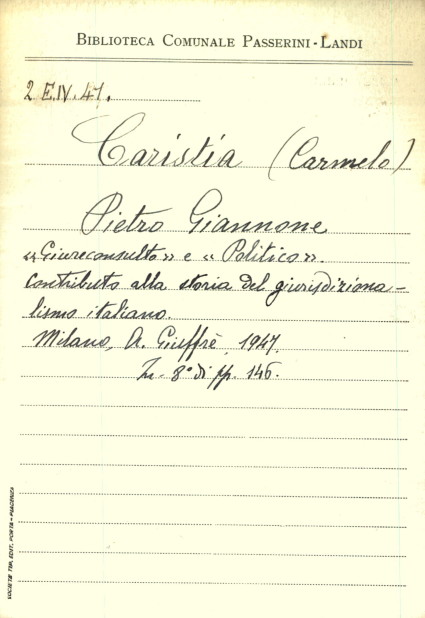 BIBLIOTECA COMUNALE PASSERINI-LANDI
2 E.IV.41.
Caristia (Carmelo)
Pietro Giannone
«Giureconsulto» e «Politico».
Contributo alla storia del giurisdiziona-
lismo italiano.
Milano, A. Giuffrè, 1947.
In-8° di pp. 146.
SOCIETÀ TIP. EDIT. PORTA - PIACENZA